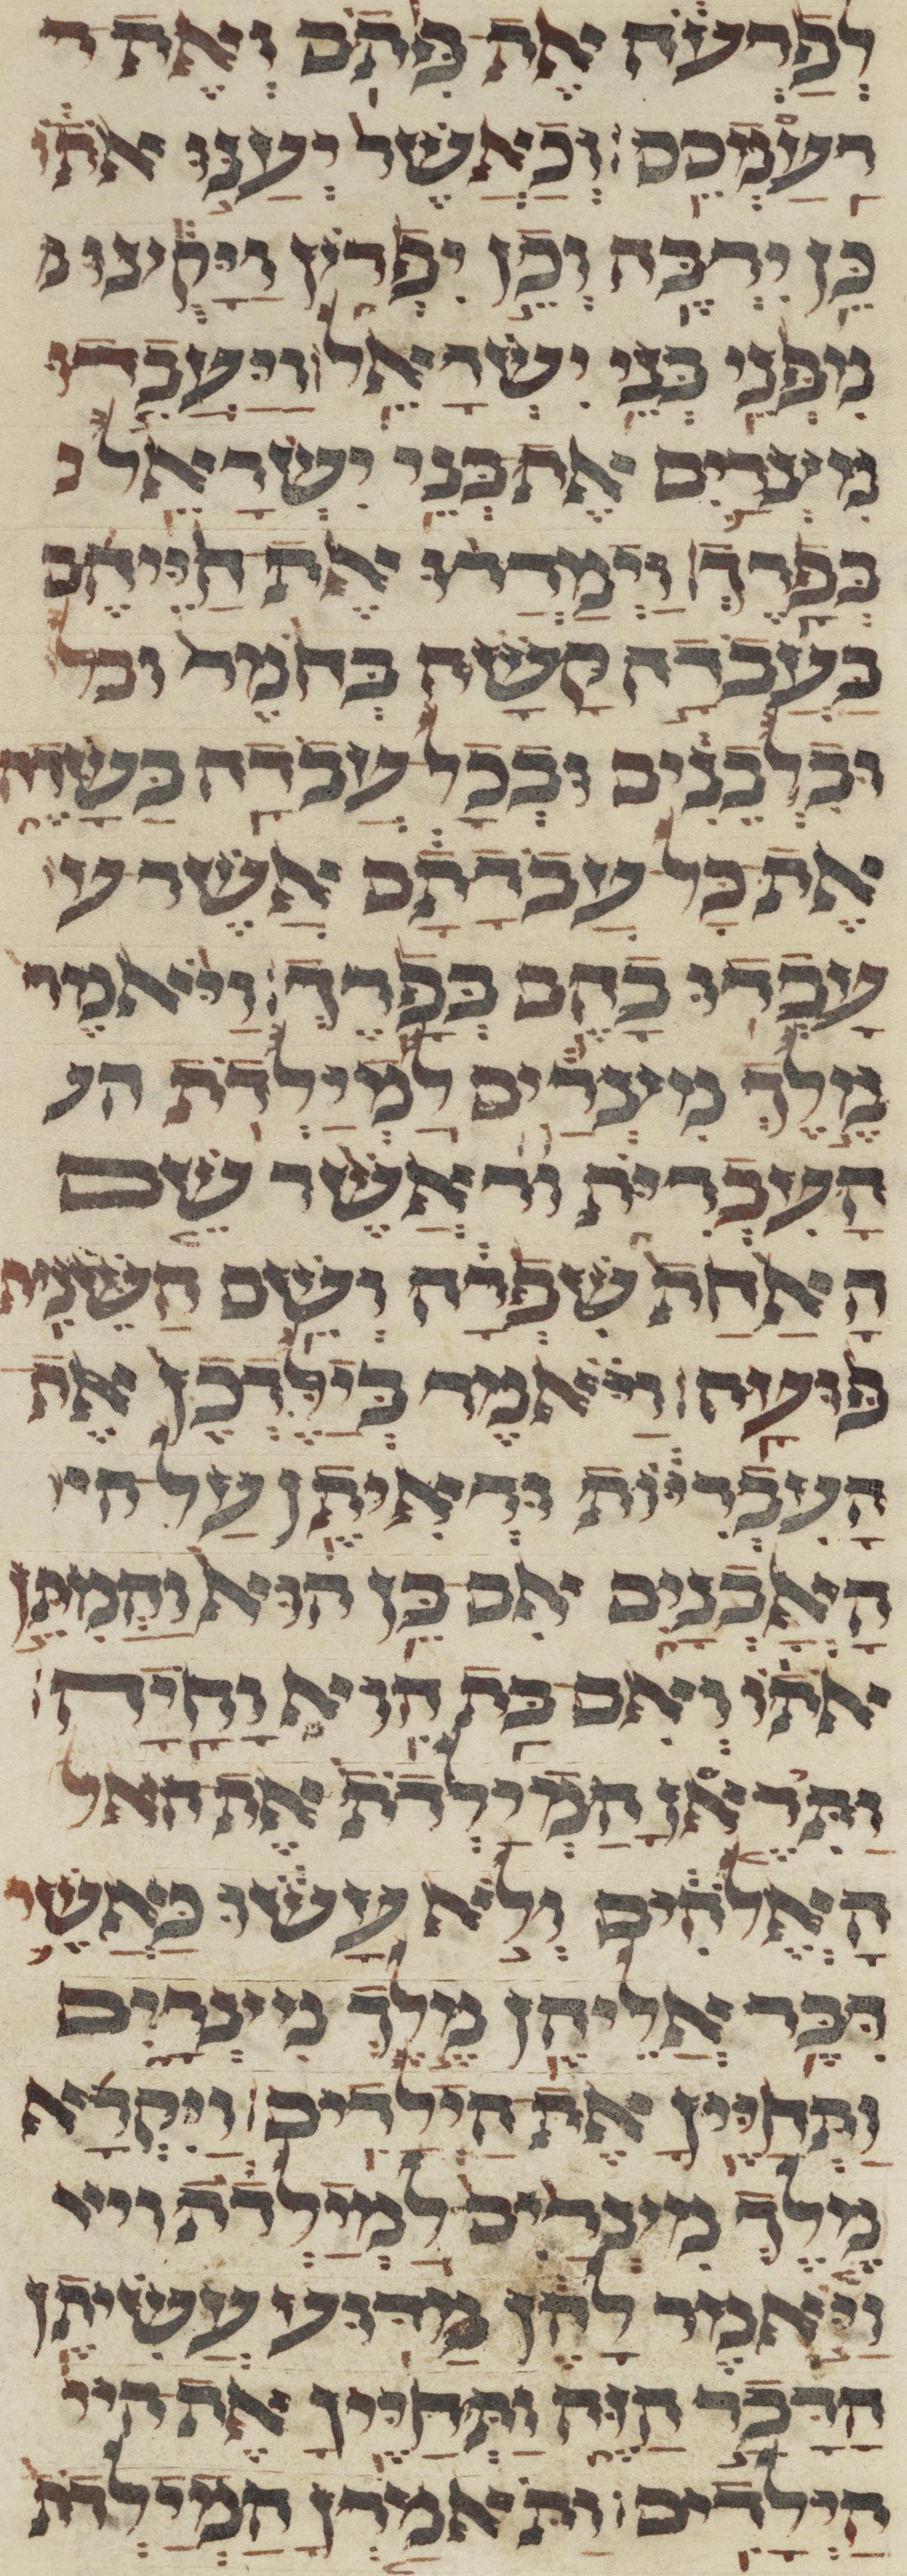 לְפַרְעֹה אֶת־פִּתֹם וְאֶת־ר
רַעַמְסֵס׃ וְכַאֲשֶׁר יְעַנּוּ אֹתוֹ
כֵּן יִרְבֶּה וְכֵן יִפְרֹץ וַיָּקֻצוּ
מִפְּנֵי בְּנֵי יִשְׂרָאֵל׃ וַיַּעֲבִדוּ
מִצְרַיִם אֶת־בְּנֵי יִשְׂרָאֵל ב
בְּפָרֶךְ׃ וַיְמָרְרוּ אֶת־חַיֵּיהֶם
בַּעֲבֹדָה קָשָׁה בְּחֹמֶר ובל
וּבִלְבֵנִים וּבְכָל־עֲבֹדָה בַּשָּׂדֶה
אֵת כָּל־עֲבֹדָתָם אֲשֶׁר ע
עָבְדוּ בָהֶם בְּפָרֶךְ׃ וַיֹּאמֶר
מֶלֶךְ מִצְרַיִם לַמְיַלְּדֹת הע
הָעִבְרִיּוֹת אֲשֶׁר שֵׁם
הָאַחַת שִׁפְרָה וְשֵׁם הַשֵּׁנִית
פּוּעָה׃ וַיֹּאמֶר בְּיַלֶּדְכֶן אֶת־
הָעִבְרִיּוֹת וּרְאִיתֶן עַל־הא
הָאָבְנָיִם אִם־בֵּן הוּא וַהֲמִתֶּן
אֹתוֹ וְאִם־בַּת הִוא וָחָיָה׃
וַתִּירֶאןָ הַמְיַלְּדֹת אֶת־האל
הָאֱלֹהִים וְלֹא עָשׂוּ כַּאֲשֶׁר
דִּבֶּר אֲלֵיהֶן מֶלֶךְ מִצְרָיִם
וַתְּחַיֶּיןָ אֶת־הַיְלָדִים׃ וַיִּקְרָא
מֶלֶךְ־מִצְרַיִם לַמְיַלְּדֹת ויא
וַיֹּאמֶר לָהֶן מַדּוּעַ עֲשִׂיתֶן
הַדָּבָר הַזֶּה וַתְּחַיֶּיןָ אֶת־הי
הַיְלָדִים׃ וַתֹּאמַרְןָ הַמְיַלְּדֹת